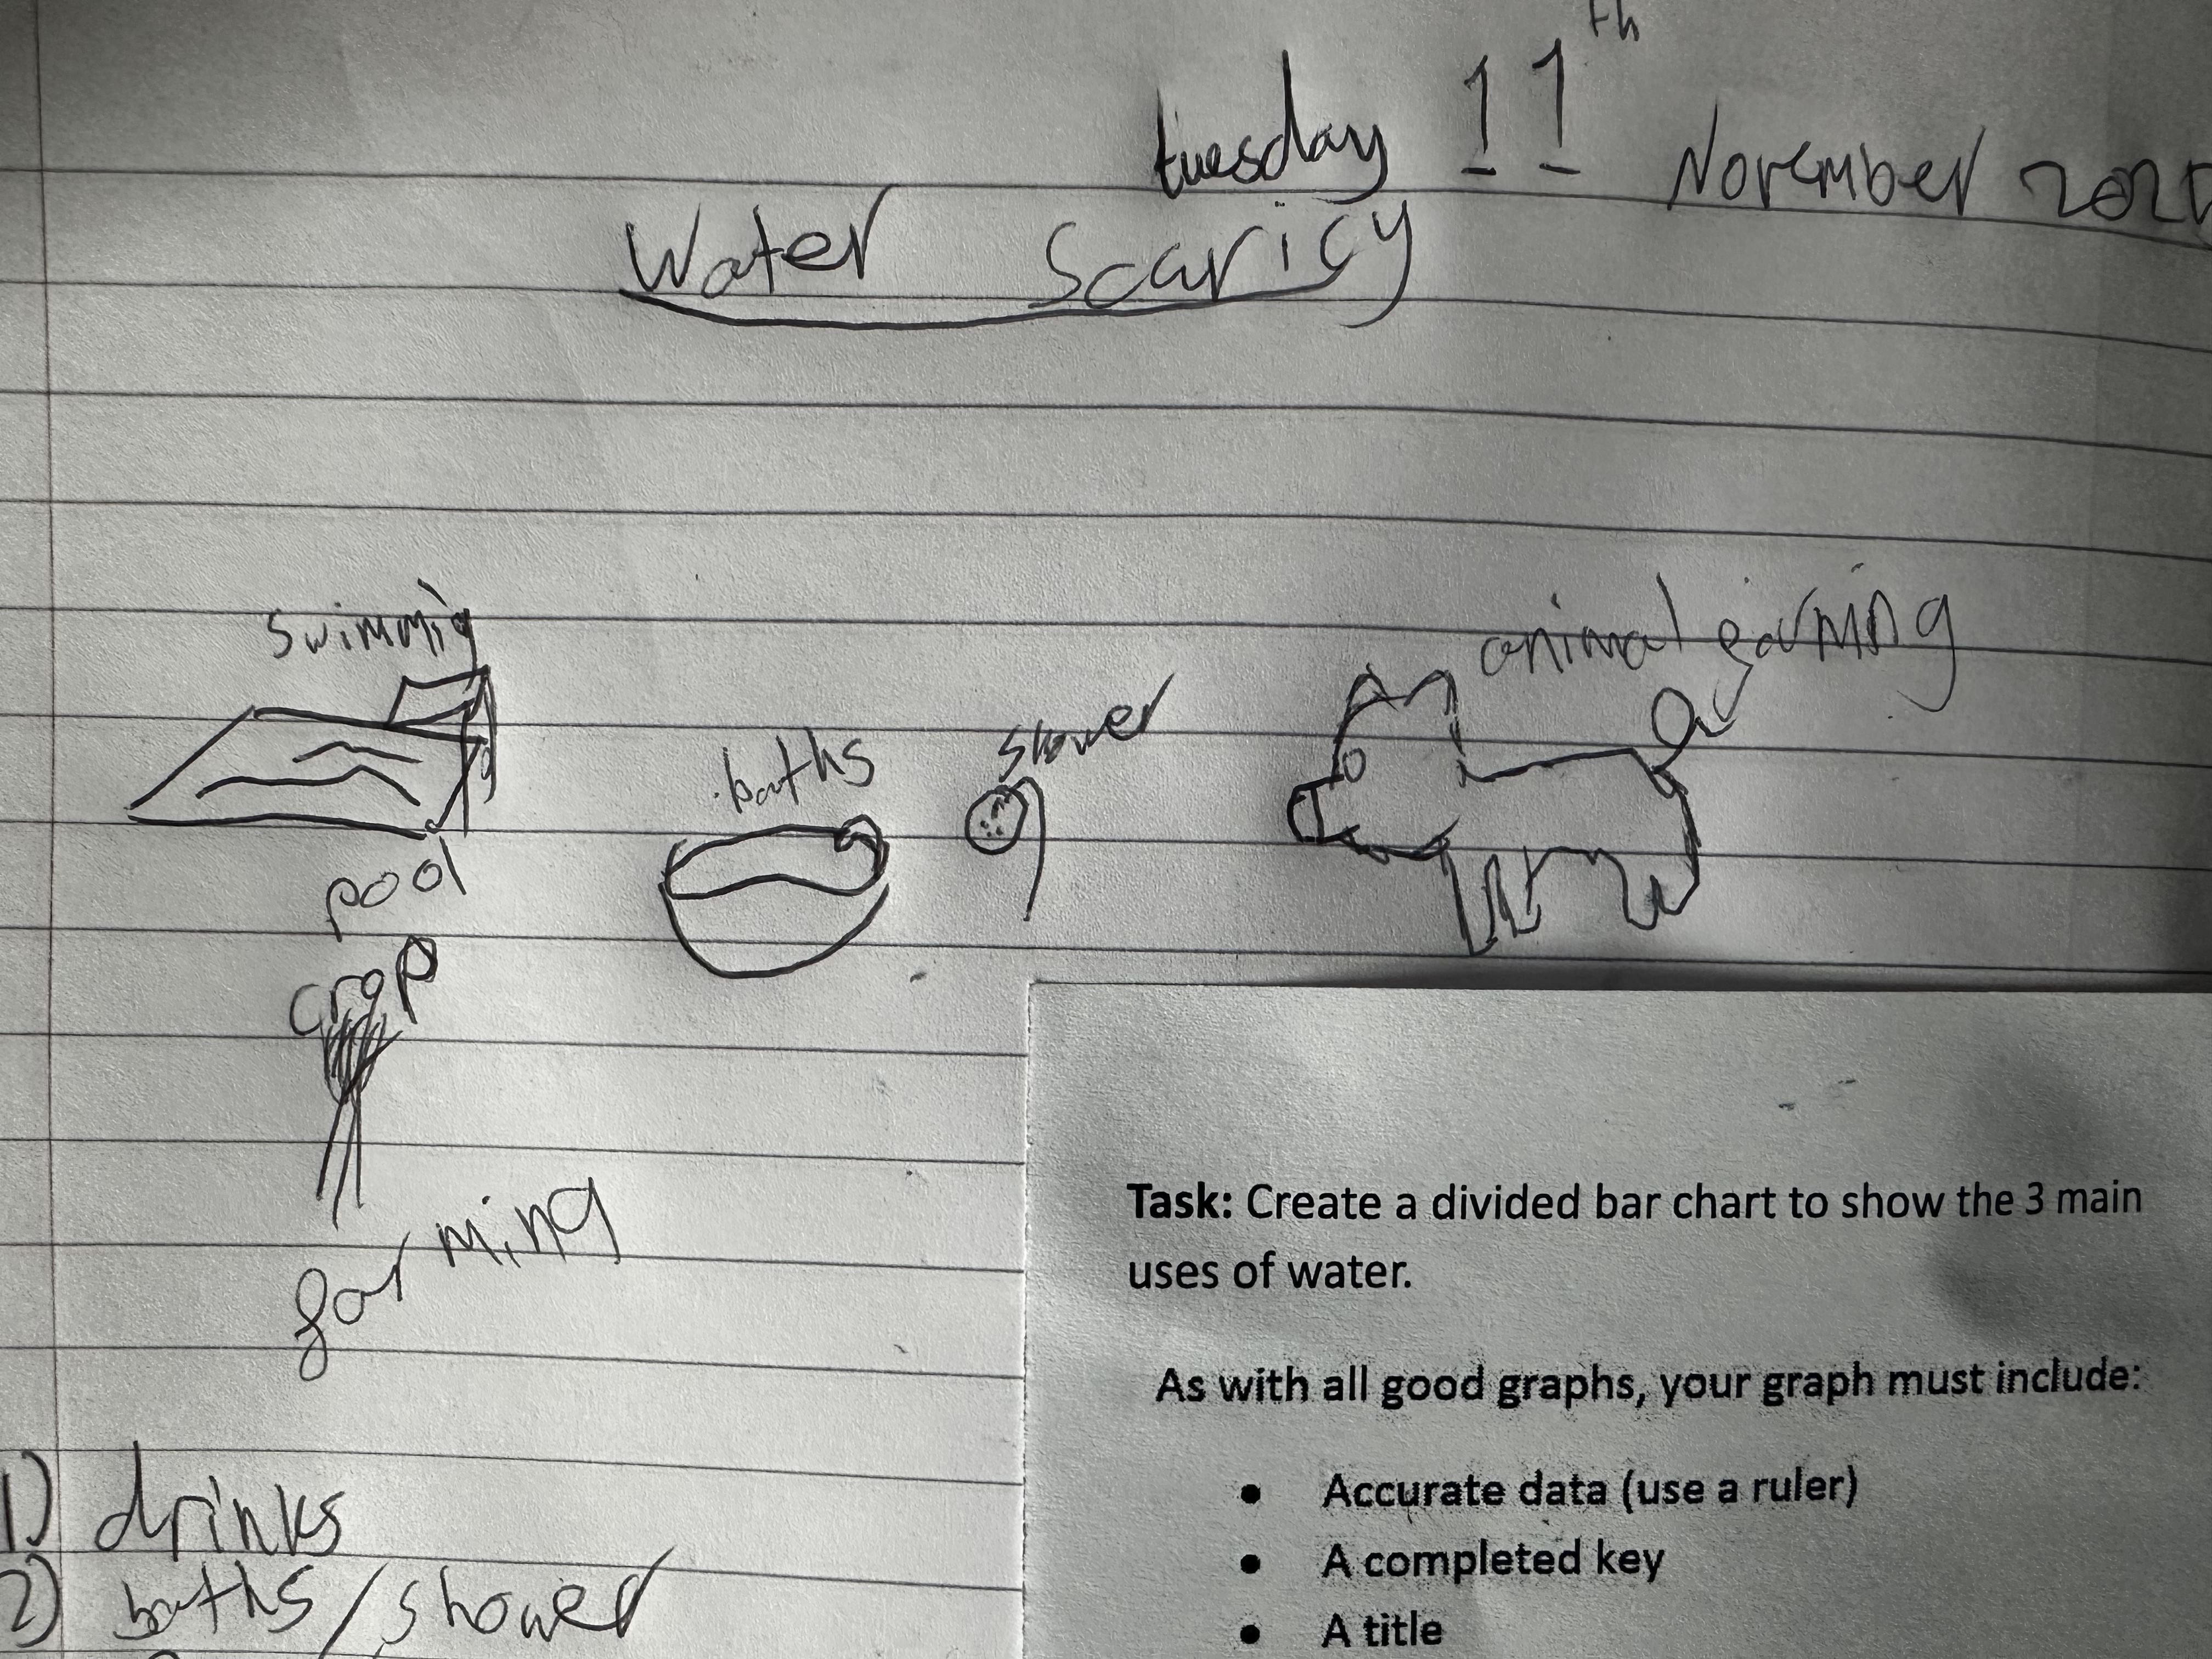 tuesday 11th November 2025
Water Scaricy
swimmig
pool
baths
shower
animal farming
crop
farming
1) drinks
2) baths/shower
Task: Create a divided bar chart to show the 3 main
uses of water.
As with all good graphs, your graph must include:
• Accurate data (use a ruler)
• A completed key
• A title